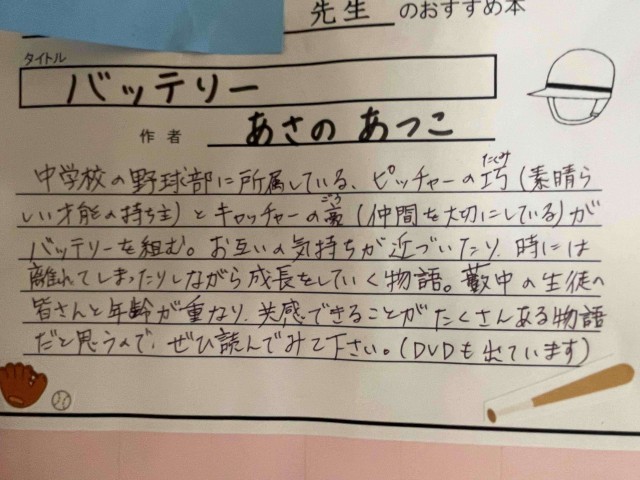 先生 のおすすめ本
タイトル
バッテリー
作者 あさの あつこ
中学校の野球部に所属している、ピッチャーの巧(たくみ)(素晴ら
しい才能の持ち主)とキャッチャーの豪(ごう)(仲間を大切にしている)が
バッテリーを組む。お互いの気持ちが近づいたり、時には
離れてしまったりしながら成長をしていく物語。藪中の生徒の
皆さんと年齢が重なり、共感できることがたくさんある物語
だと思うので、ぜひ読んでみて下さい。(DVDも出ています)